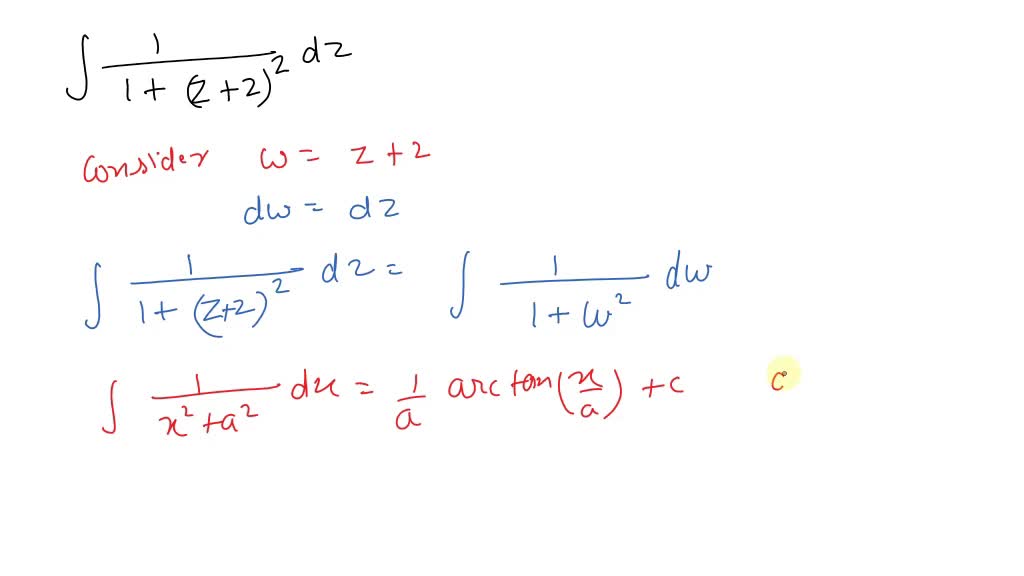 ∫ 1/(1 + (z+2)²) dz
Consider w = z + 2
dw = dz
∫ 1/(1 + (z+2)²) dz = ∫ 1/(1 + w²) dw
∫ 1/(x² + a²) dx = 1/a arc tan(x/a) + c c